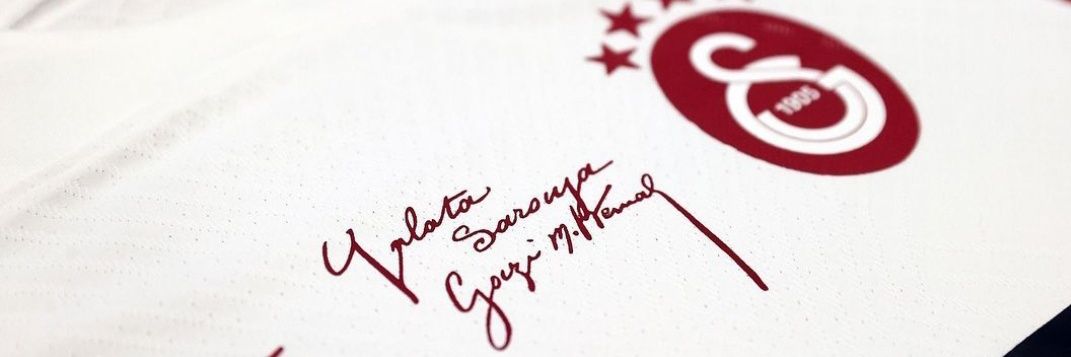 1905
Galata
Saraya
Gazi M. Kemal